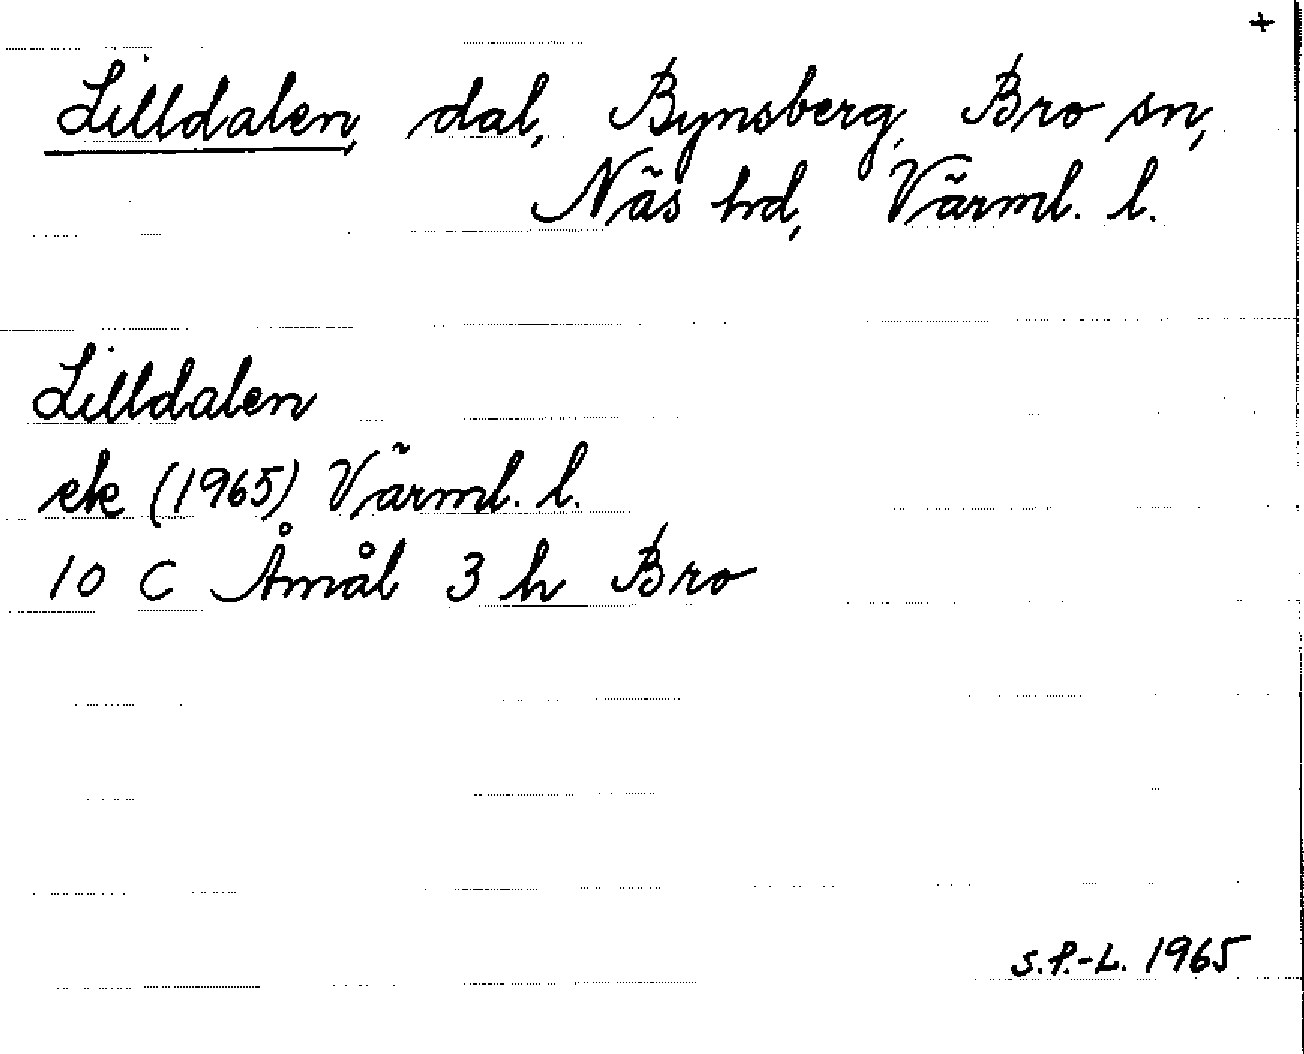 +
Lilldalen, dal, Bynsberg, Bro sn,
Näs hd, Värml. l.
Lilldalen
ek (1965) Värml. l.
10 C Åmål 3 h Bro
S.P.-L. 1965